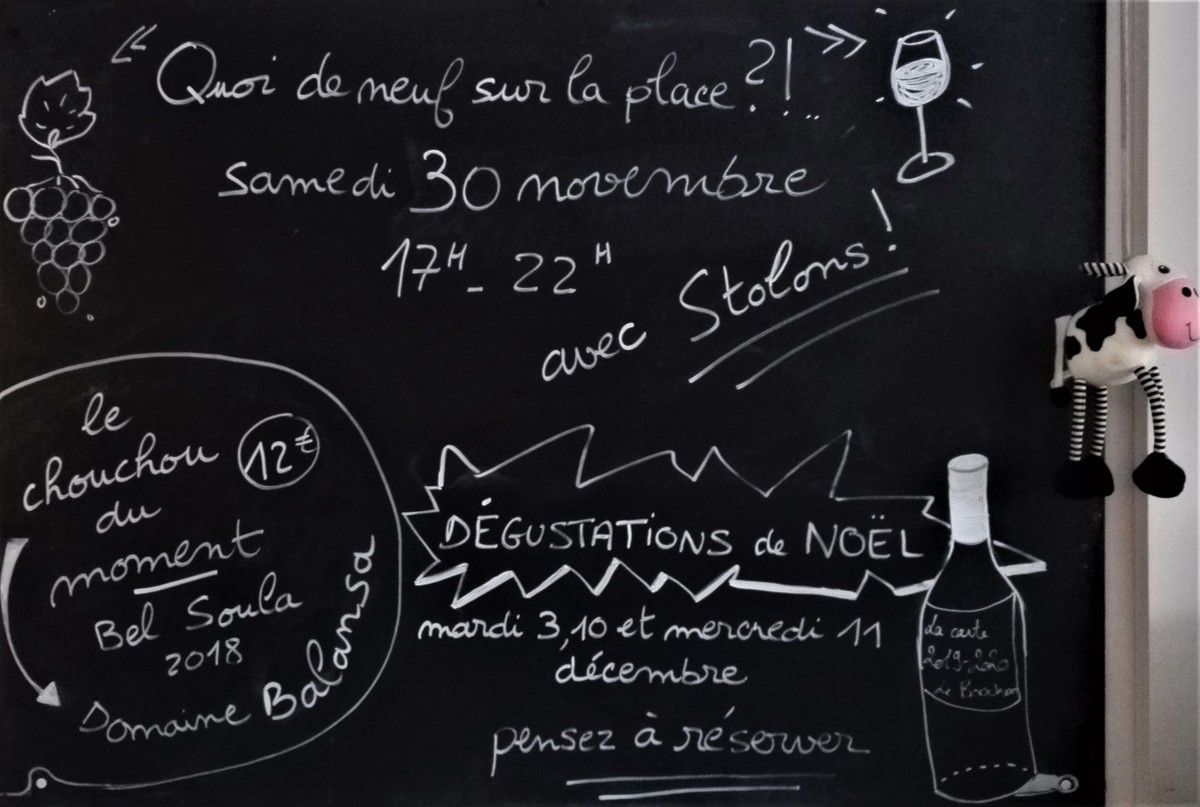 « Quoi de neuf sur la place ?!... »
samedi 30 novembre
17H - 22H
avec Stolons !
le
chouchou
du
moment
12€
Bel Soula
2018
Domaine Balansa
DÉGUSTATIONS de NOËL
mardi 3, 10 et mercredi 11
décembre
pensez à réserver
La carte
2019-2020
de